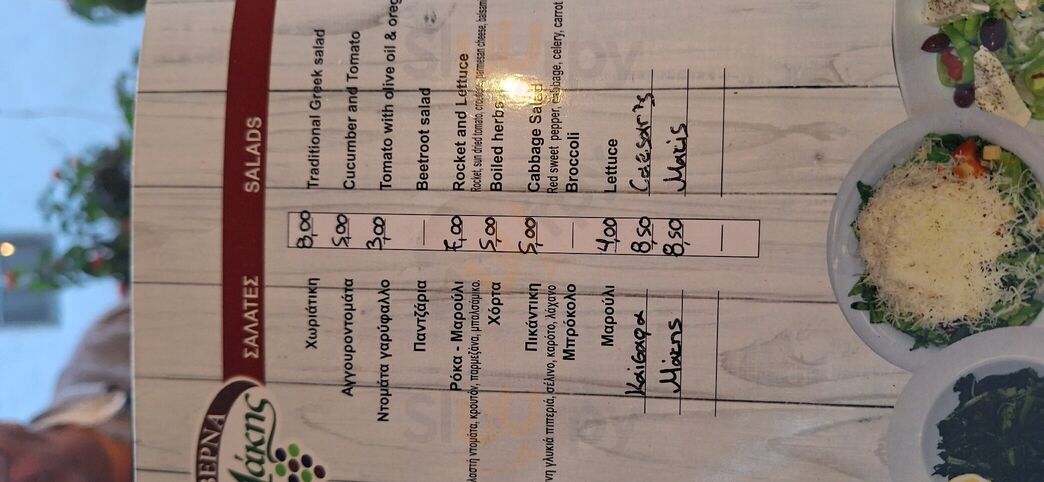 ΒΕΡΝΑ
Μάκης
ΣΑΛΑΤΕΣ SALADS
Χωριάτικη 8,00 Traditional Greek salad
Αγγουροντομάτα 5,00 Cucumber and Tomato
Ντομάτα γαρύφαλλο 3,00 Tomato with olive oil & oreg
Παντζάρια — Beetroot salad
Ρόκα - Μαρούλι 7,00 Rocket and Lettuce
λιαστή ντομάτα, κρουτόν, παρμεζάνα, μπαλσάμικο. Rocket, sun dried tomato, parmesan cheese, balsam
Χόρτα 5,00 Boiled herbs
Πικάντικη 5,00 Cabbage Salad
νη γλυκιά πιπεριά, σέλινο, καρότο, λάχανο Red sweet pepper, cabbage, celery, carrot
Μπρόκολο — Broccoli
Μαρούλι 4,00 Lettuce
Καίσαρα 8,50 Caesar's
Μάκης 8,50 Makis
—